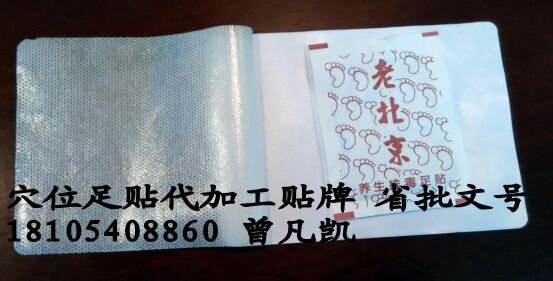 老北京
养生排毒足贴
穴位足贴代加工贴牌 省批文号
18105408860 曾凡凯